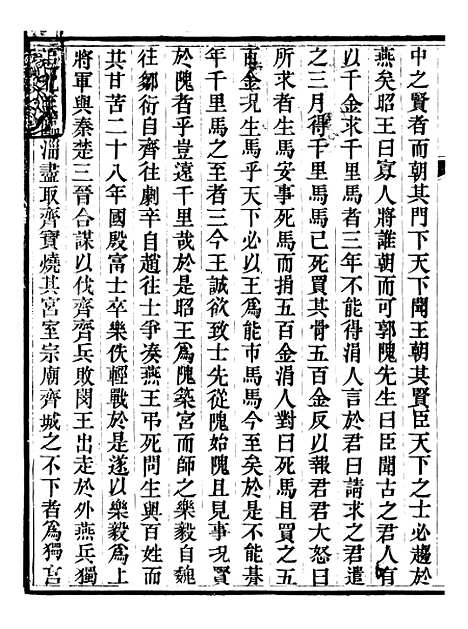 中之賢者而朝其門下天下聞王朝其賢臣天下之士必趨於
燕矣昭王曰寡人將誰朝而可郭隗先生曰臣聞古之君人有
以千金求千里馬者三年不能得涓人言於君曰請求之君遣
之三月得千里馬馬已死買其骨五百金反以報君君大怒曰
所求者生馬安事死馬而捐五百金涓人對曰死馬且買之五
百金況生馬乎天下必以王爲能市馬馬今至矣於是不能朞
年千里馬之至者三今王誠欲致士先從隗始隗且見事況賢
於隗者乎豈遠千里哉於是昭王爲隗築宮而師之樂毅自魏
往鄒衍自齊往劇辛自趙往士爭湊燕王弔死問生與百姓而
其甘苦二十八年國殷富士卒樂佚輕戰於是遂以樂毅爲上
將軍與秦楚三晉合謀以伐齊齊兵敗閔王出走於外燕兵獨
淄盡取齊寶燒其宮室宗廟齊城之不下者爲獨宮